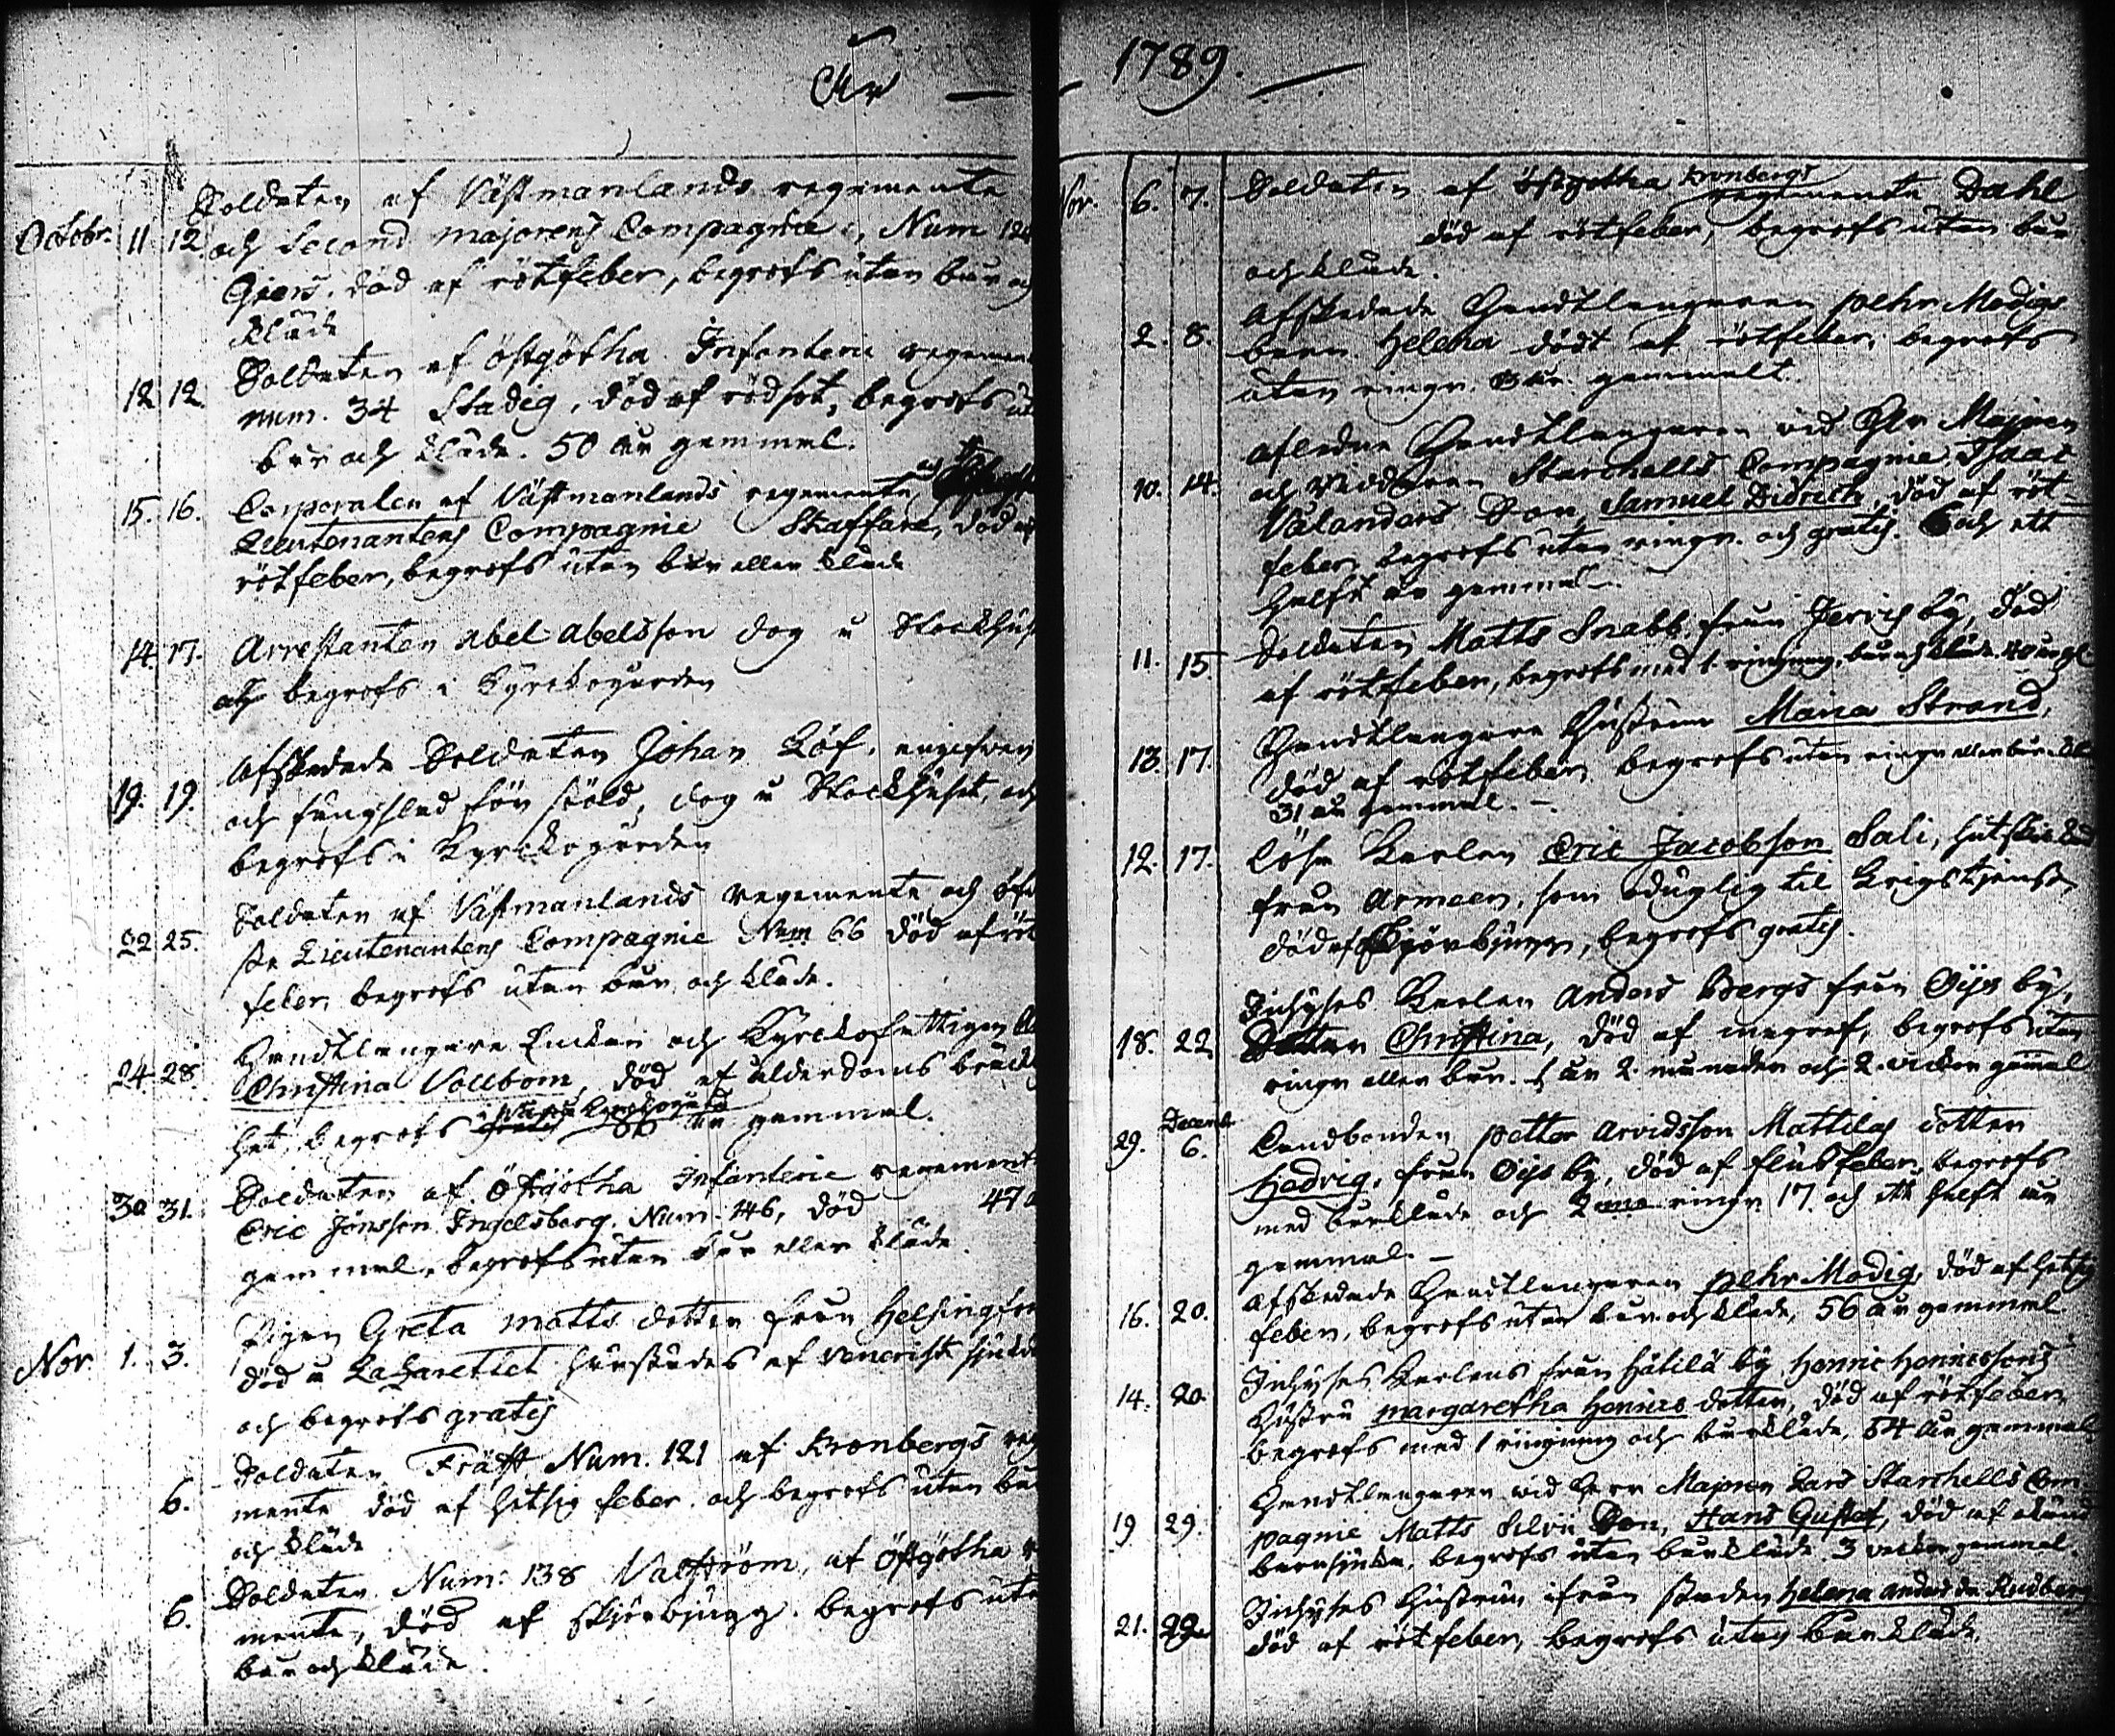 År — 1789. —
Soldaten af Västmanlands regemente
Octobr. 11 12. och Second majorens Compagnie, Num 124
död af rötfeber, begrofs utan bår och
kläde
Soldaten af östgötha Infanterie regemen
12 12. num. 34 Stadig, död af rödsot, begrofs ut
bår och kläde. 50 år gammal.
15. 16. Corporalen af Västmanlands regemente, och
Lieutenantens Compagnie Staffare, död af
rötfeber, begrofs utan bår eller kläde
14. 17. Arrestanten Abel Abelsson dog å Stockhus
och begrofs i Kyrckogården
Afskedade Soldaten Johan Löf, angifven
19. 19. och fängslad för stöld, dog å Stockhuset, och
begrofs i Kyrckogården
Soldaten af Västmanlands regemente och öfv
22 25. ste Lieutenantens Compagnie Num 66 död af röt
feber, begrofs utan bår och kläde.
Handtlangare Enkan och Kyrckofattigen
24 28. Christina Vollbom, död af ålderdoms bräckl
het, begrofs gratis 86 år gammal.
Soldaten af Östgötha Infanterie regement
30 31. Eric Jönsson Ingelsberg. Num. 146, död 47
gammal, begrofs utan bår eller kläde.
Pigan Greta Matts dotter från Helsingfor
Nov. 1. 3. död å Lazarettet härstädes af venerisk sjukd
och begrofs gratis
Soldaten Fräst Num. 121 af Kronbergs reg
6. mente död af hetsig feber och begrofs utan bår
och kläde
Soldaten Num: 138 Valström, af Östgötha
6. mente, död af skjörbjugg. begrofs uta
bår och kläde.
Nov. 6. 7. Soldaten af östgotha Kronbergs regemente Dahl
död af rötfeber, begrofs utan bår
och kläde.
Afskedade Handtlangaren Pehr Modigs
2. 8. barn Helena dödt af rötfeber, begrofs
utan ringn. 3 år. gammalt.
Afledne Handtlangaren vid Hr Majoren
10. 14. och Riddaren Starchells Compagnie Isaac
Välanders Son, Samuel Didrich, död af röt-
feber, begrofs utan ringn. och gratis. 6 och ett
halft år gammal.
Soldaten Matts Snabb från Jervis by, död
11. 15 af rötfeber, begrofs med 1. ringning, bår och kläde. 40 år gl
Handtlangare Hustrun Maria Strand,
13. 17. död af rötfeber, begrofs utan ringn eller bår. kl
31 år gammal. –
12. 17. Löse Karlen Eric Jacobsson Sali,
från Armeen, som oduglig til Krigstjenst,
död af Skjörbjugg, begrofs gratis.
Inhyses Karlen Anders Bergs från Öijs by,
18. 22 Dotter Christina, död af magref, begrofs utan
ringn eller bår. 1 år 2. månader och 2. veckor gamal
December
29. 6. Landbonden Petter Arvidsson Mattilas dotter
Hedvig, från Öijs by, död af flusfeber, begrofs
med bårkläde och 2 ringn 17 och ett halft år
gammal. –
Afskedade Handtlangaren Pehr Modig, död af hetsig
16. 20. feber, begrofs utan bår och kläde, 56 år gammal
Inhyses Karlens från Hätilä by Henric Henricssons
14. 20. Hustru Margaretha Henrics dotter, död af rötfeber,
begrofs med 1 ringning och bårkläde, 54 år gammal.
Handtlangaren vid Herr Majoren Lars Starchells Com-
19 29. pagnie Matts Silvii Son, Hans Gustaf, död af okänd
barnsjuka, begrofs utan bårkläde. 3 veckor gammal.
Inhyses Hustrun ifrån staden Helena Anders dr Rudberg
21. 29. död af rötfeber, begrofs utan bårkläde.